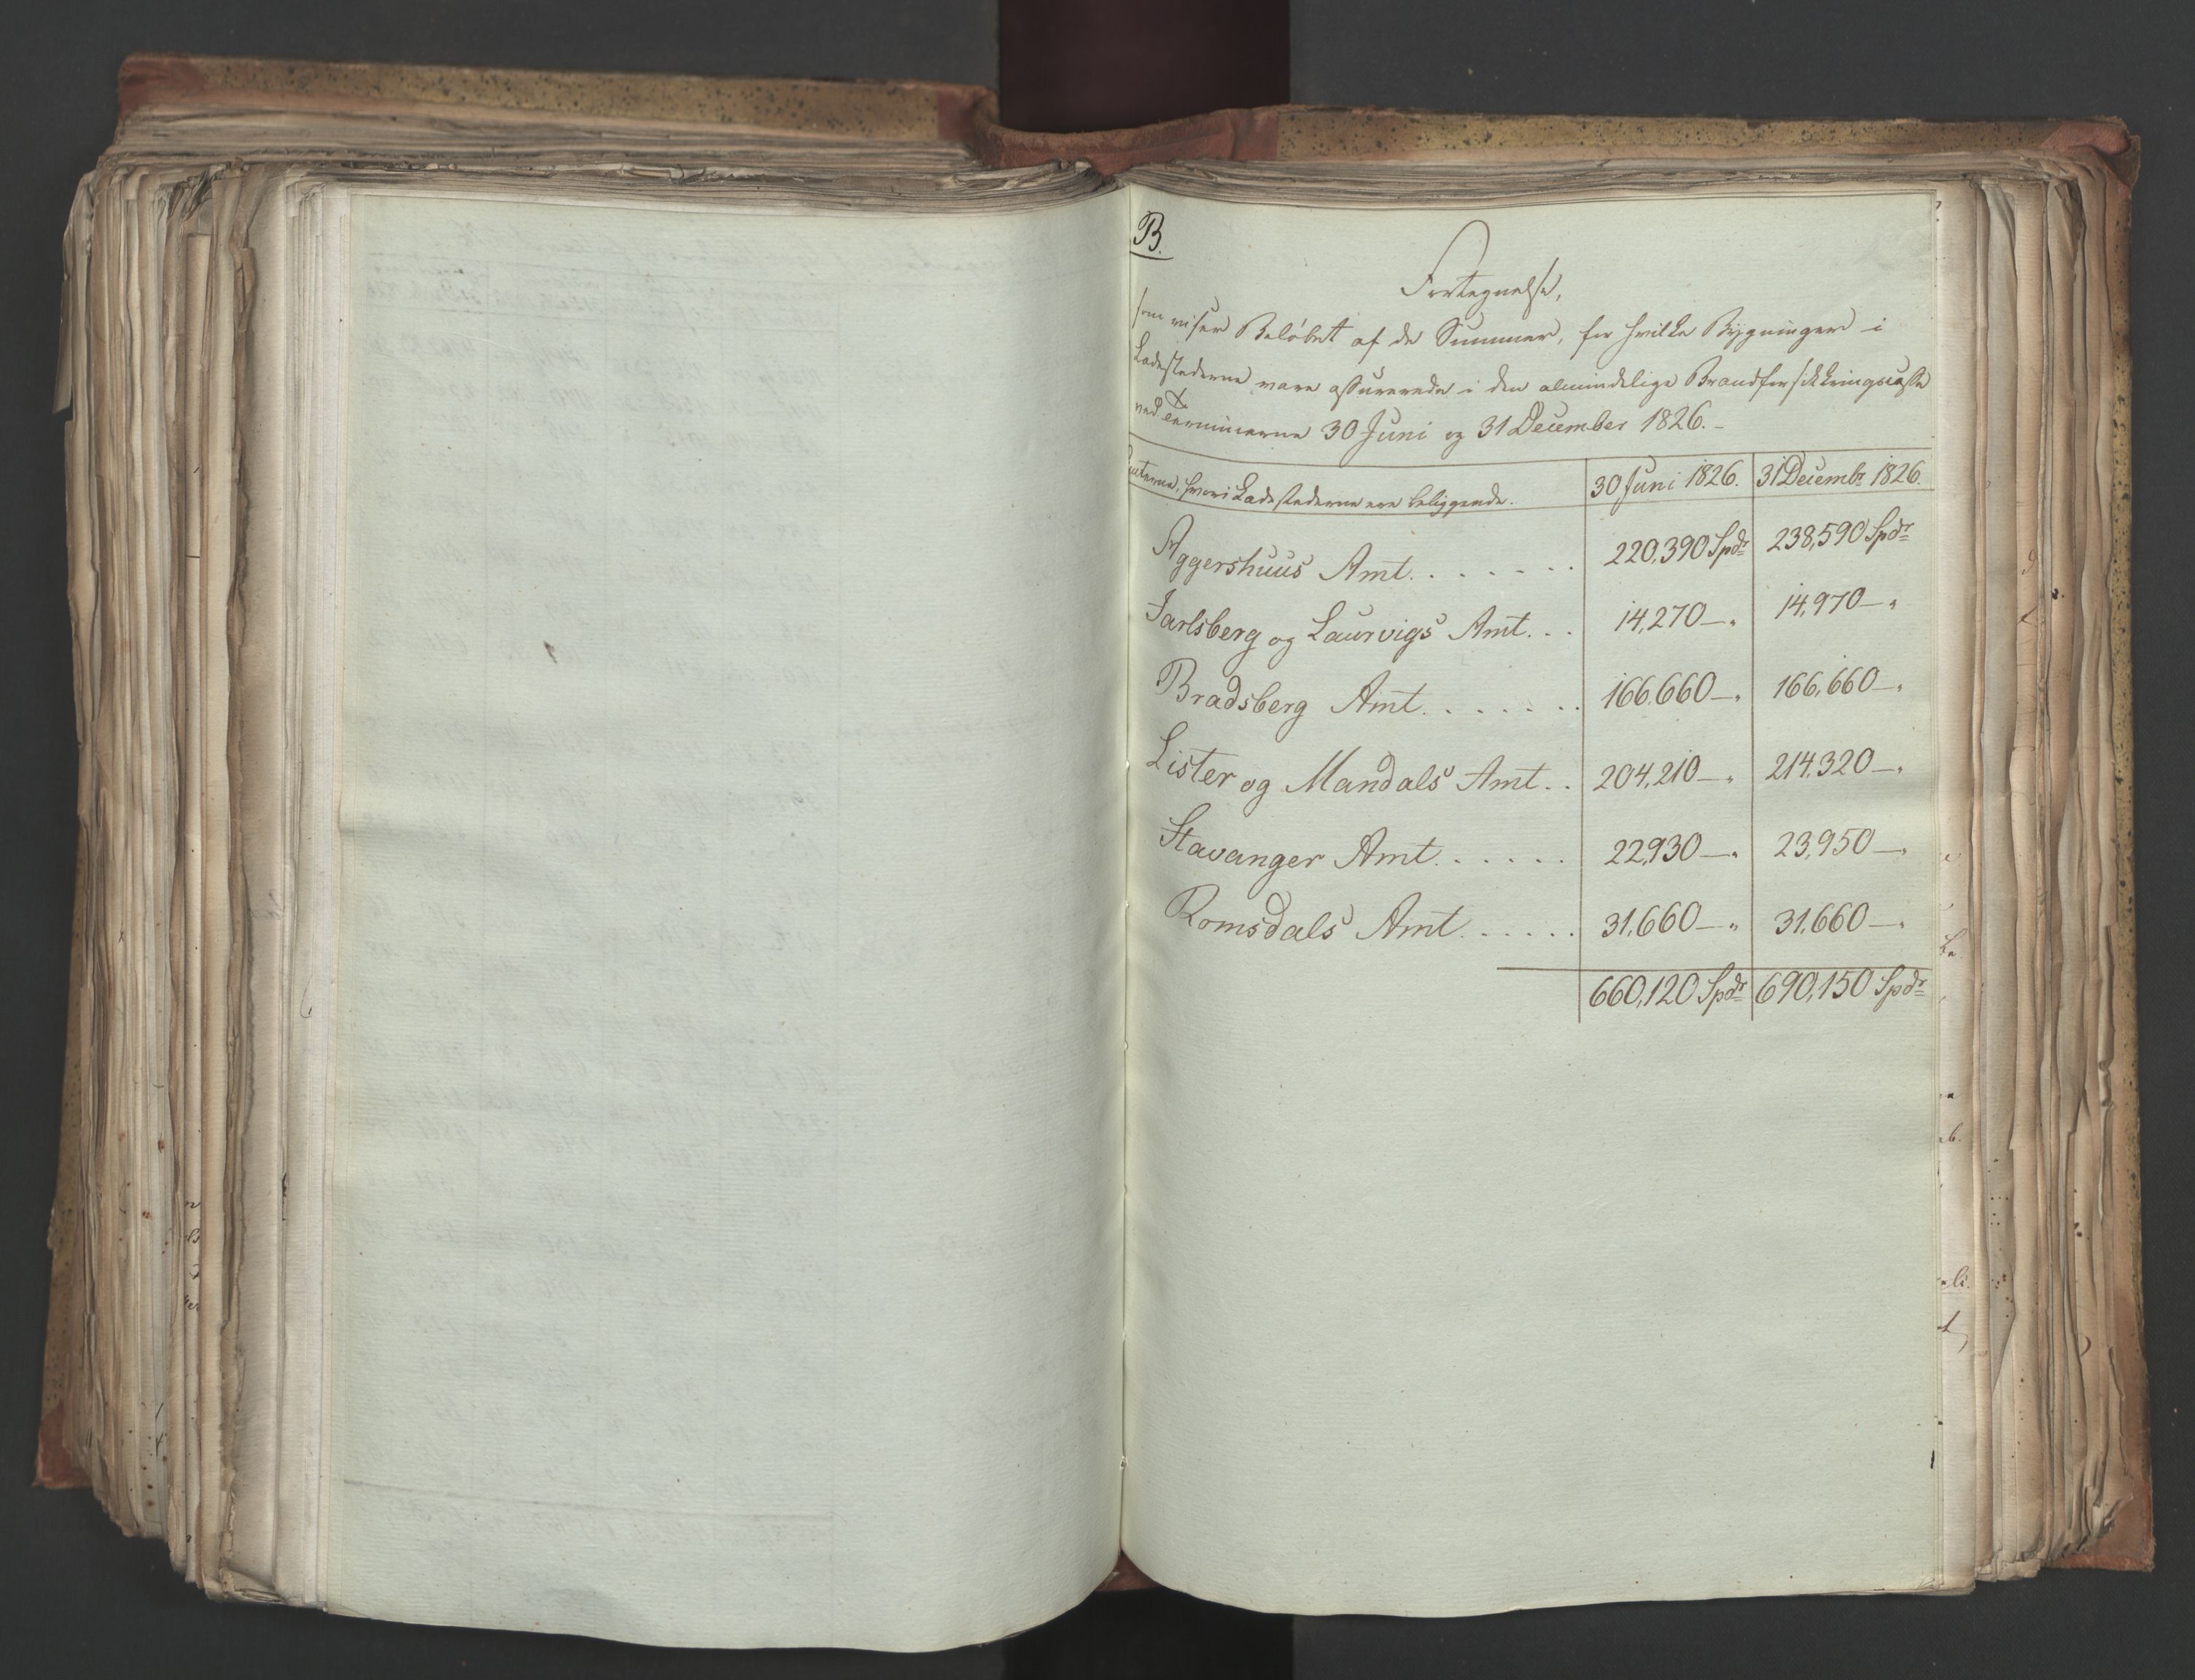 B.
Fortegnelse,
som viser Beløbet af de Summer, for hvilke Bygninger i
Ladestederne vare assurerede i den almindelige Brandforsikkringscasse
ved Terminerne 30 Juni og 31 December 1826.-
Amterne, hvori Ladestederne ere beliggende. 30 Juni 1826. 31 Decembr 1826.
Aggershuus Amt. . . . . . . 220,390 Spdr 238,590 Spdr
Jarlsberg og Laurvigs Amt. . . 14,270 — " 14,970 — "
Bradsberg Amt. . . . . . . 166,660 — " 166,660 — "
Lister og Mandals Amt. . 204,210 — " 214,320 — "
Stavanger Amt. . . . . . 22,930 — " 23,950 — "
Romsdals Amt. . . . . . 31,660 — " 31,660 — "
660,120 Spdr 690,150 Spdr